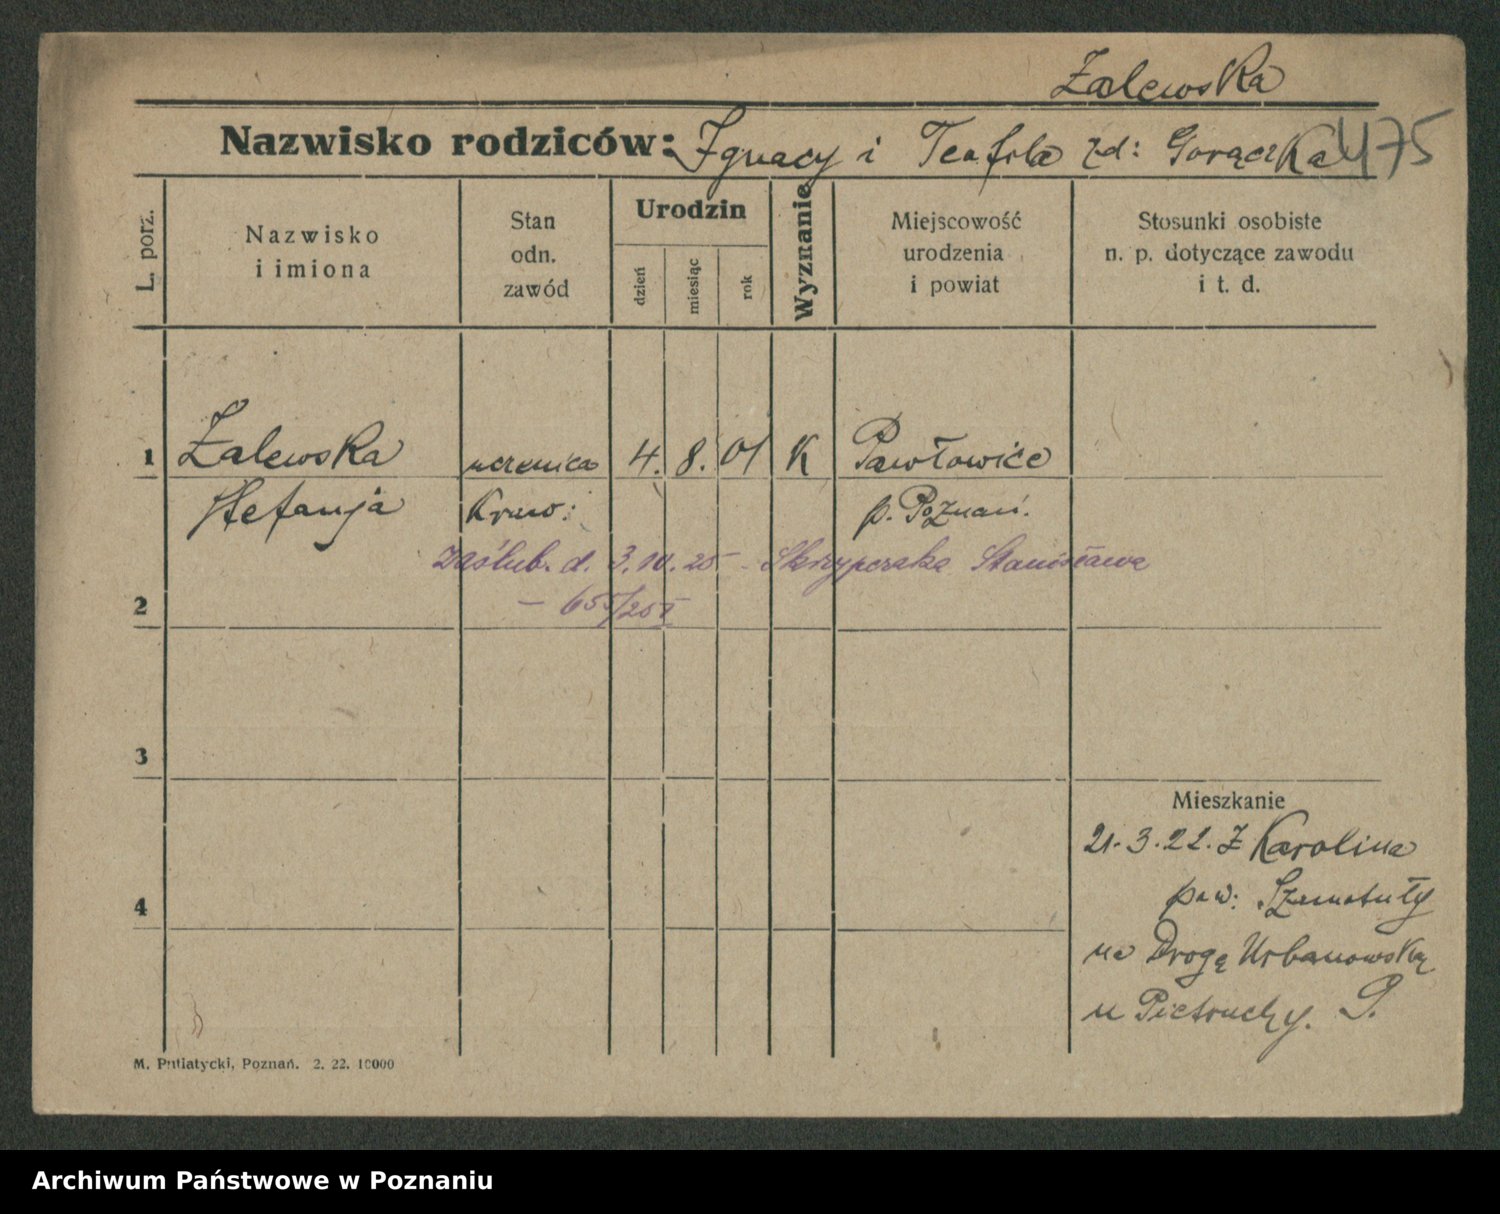 Zalewska
Nazwisko rodziców: Ignacy i Teofila zd: Gorączka 475
L. porz.
Nazwisko
i imiona
Stan
odn.
zawód
Urodzin
dzień
miesiąc
rok
Wyznanie
Miejscowość
urodzenia
i powiat
Stosunki osobiste
n. p. dotyczące zawodu
i t. d.
1 Zalewska uczenica 4. 8. 01 K Pawłowice
Stefanja Kraw: p. Poznań.
zaślub. d. 3.10.25 - Skrzypczaka Stanisława
2 — 655/25 I
3
Mieszkanie
21.3.22. Z Karolina
4 pow: Szamotuły
na Drogę Urbanowską
u Pietruchy.
M. Putiatycki, Poznań. 2. 22. 10000
Archiwum Państwowe w Poznaniu